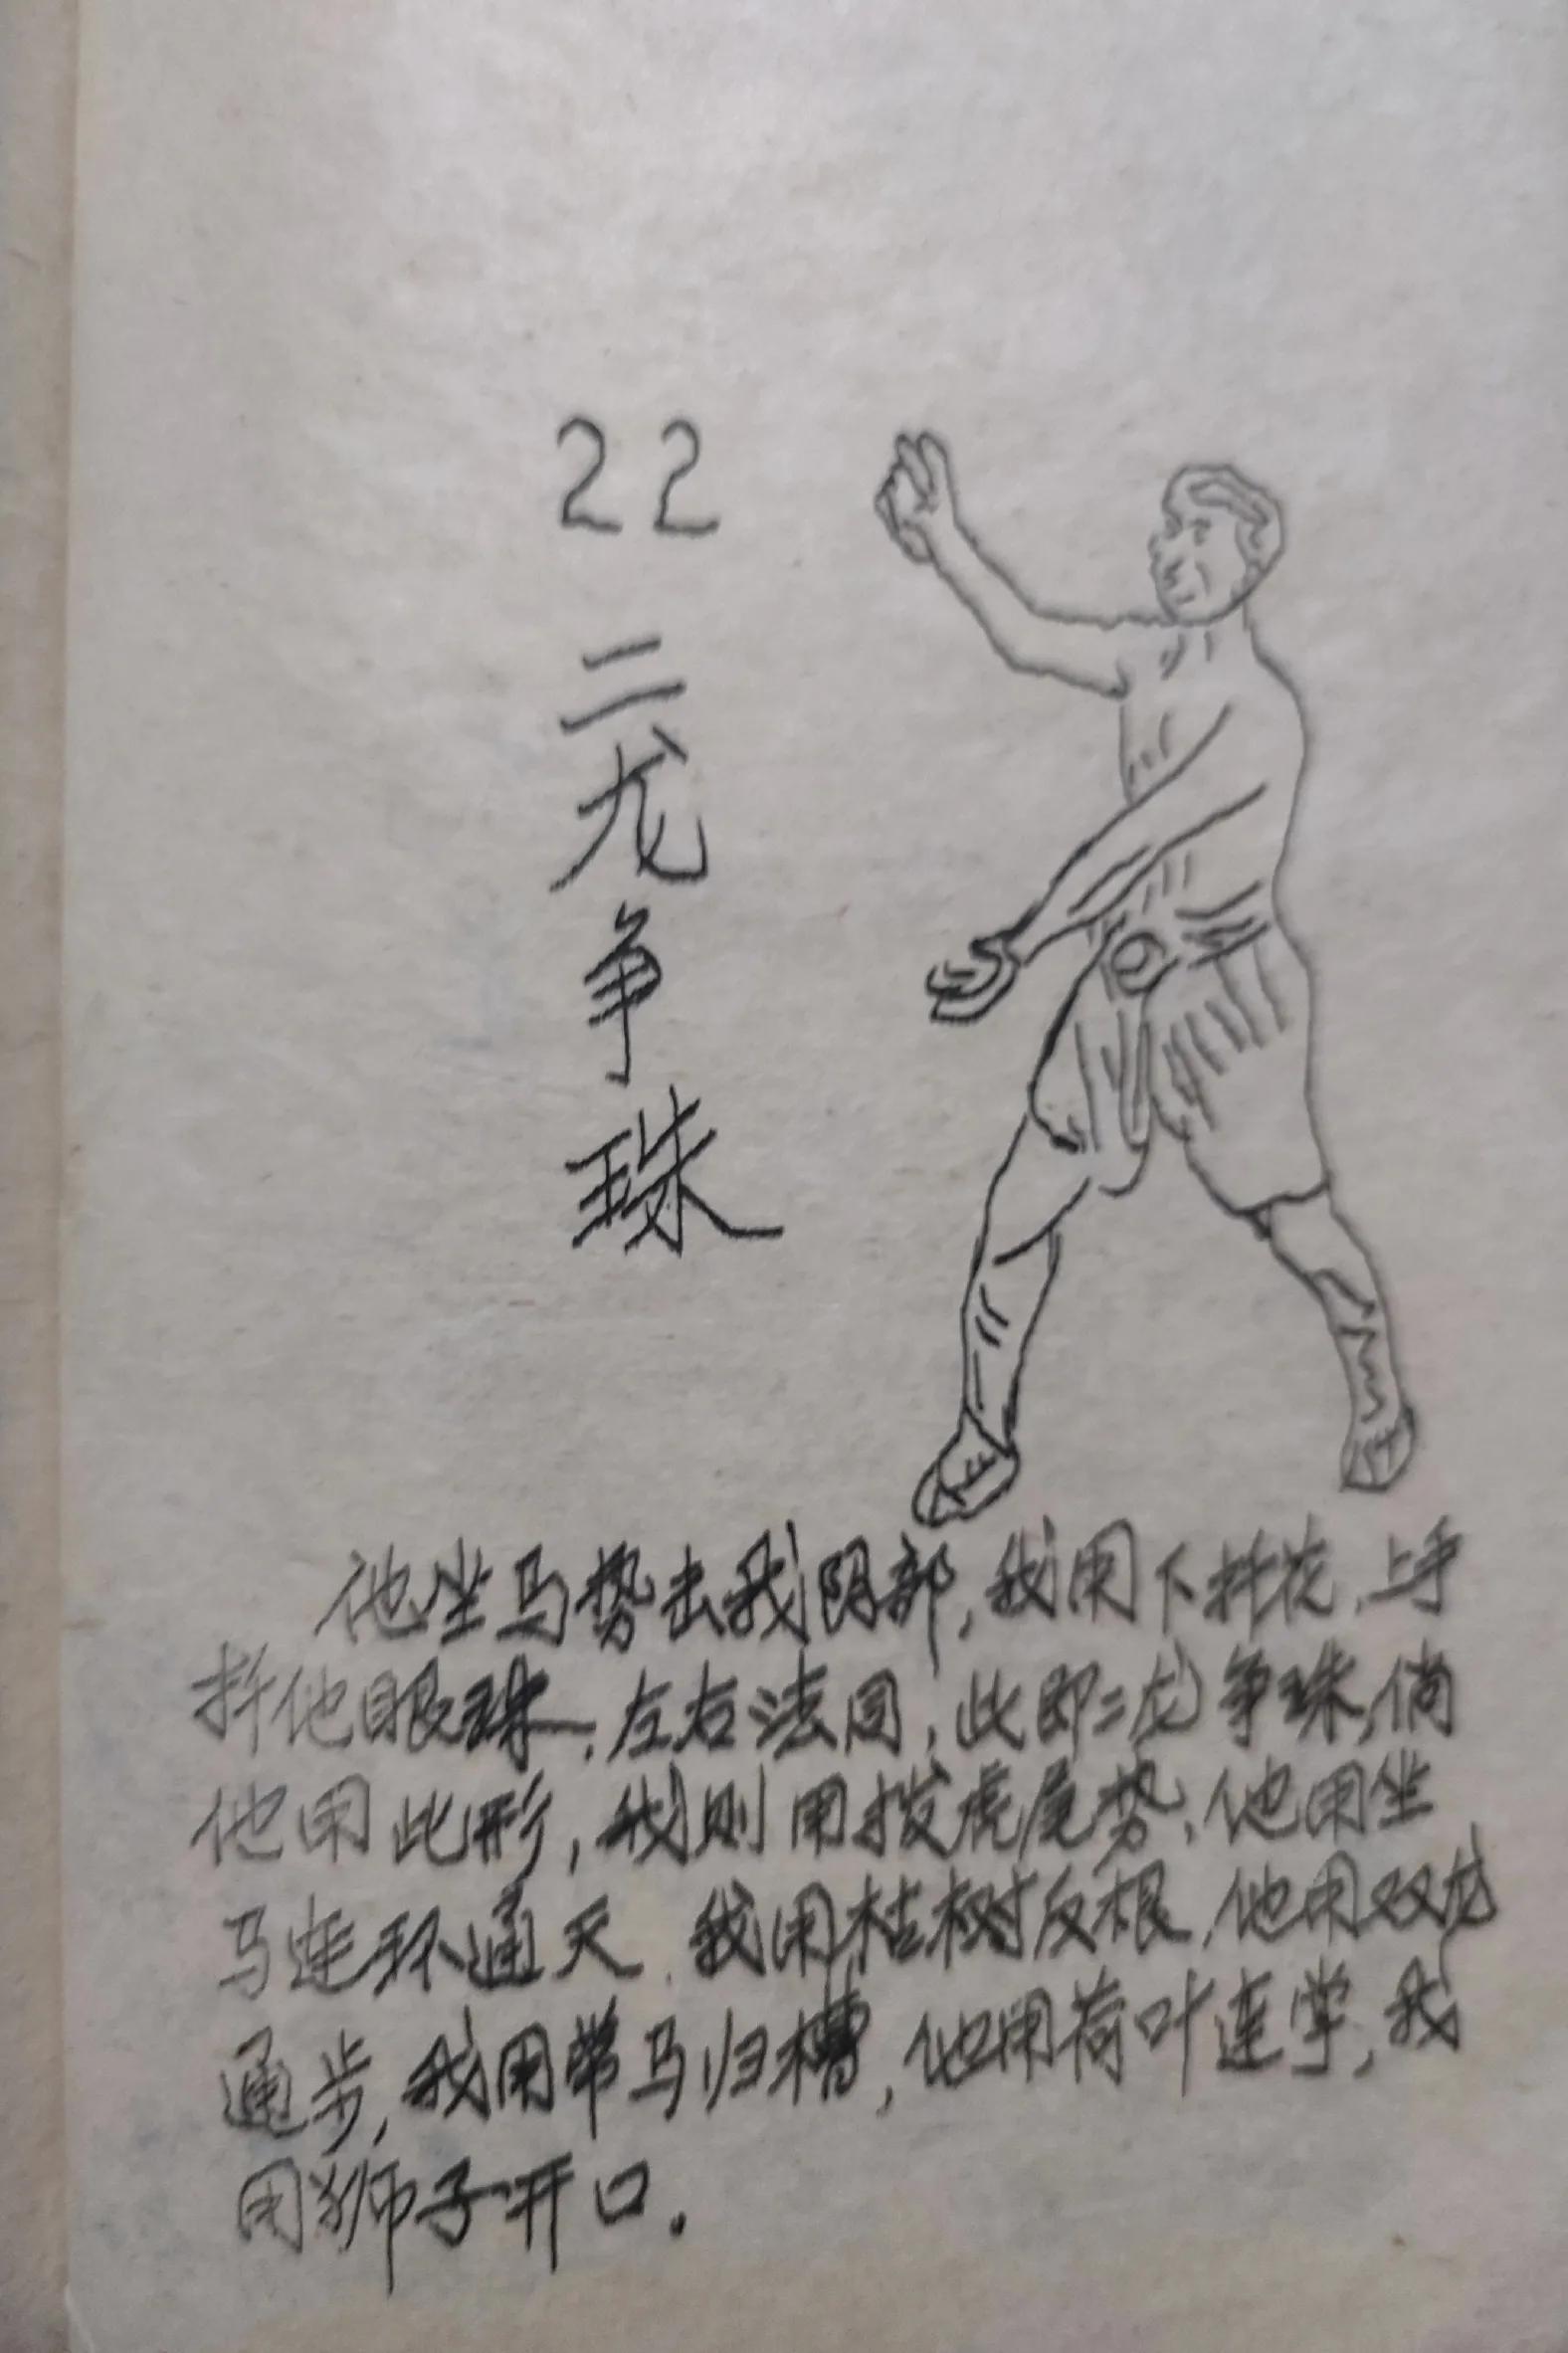 22
二龙争珠
他坐马势去我阴部，我用下托花，上手
扦他眼珠，左右法同，此即二龙争珠，倘
他用此形，我则用拔虎尾势，他用坐
马连环通天，我用枯树反根，他用双龙
通步，我用带马归槽，他用荷叶连掌，我
用狮子开口．